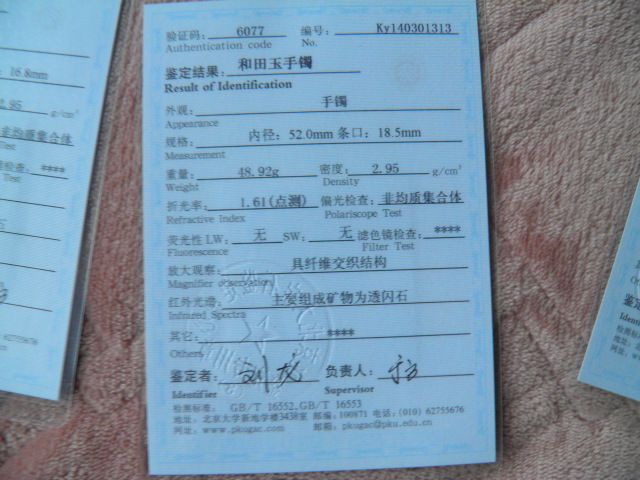 验证码: 6077 编号: Ky140301313
Authentication code No.
鉴定结果: 和田玉手镯
Result of Identification
外观: 手镯
Appearance
规格: 内径: 52.0mm 条口: 18.5mm
Measurement
重量: 48.92g 密度: 2.95 g/cm³
Weight Density
折光率: 1.61(点测) 偏光检查: 非均质集合体
Refractive Index Polariscope Test
荧光性 LW: 无 SW: 无 滤色镜检查: ****
Fluorescence Filter Test
放大观察: 具纤维交织结构
Magnifier observation
红外光谱: 主要组成矿物为透闪石
Infrared Spectra
其它: ****
Others
鉴定者: 刘龙 负责人:
Identifier Supervisor
检测标准: GB/T 16552,GB/T 16553
地址: 北京大学新地学楼3438室 邮编: 100871 电话: (010) 62755676
网址: www.pkugac.com 邮箱: pkugac@pku.edu.cn
: 16.8mm
2.95 g/cm³
非均质集合体
Test
检查: ****
Test
62755676
鉴定
Identi
检测标
地址:
网址: w